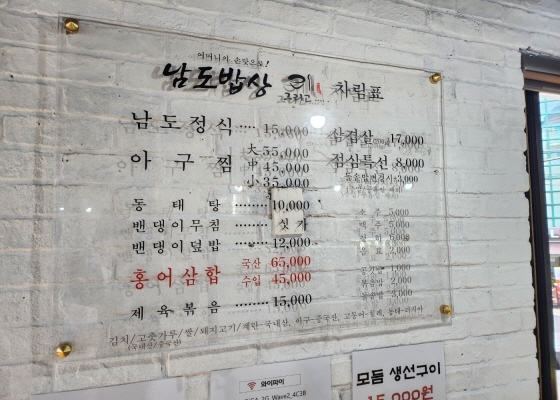 어머니의 손맛으로!
남도밥상 차림표
남도정식 ····· 15,000
아구찜 大 55,000
中 45,000
小 35,000
동태탕 ········ 10,000
밴댕이무침 ········ 싯가
밴댕이덮밥 ········ 12,000
홍어삼합 국산 65,000
수입 45,000
제육볶음 ········ 15,000
삼겹살 17,000
점심특선 8,000
3,000
소주 5,000
맥주 5,000
5,000
음료 2,000
공기밥 1,000
볶음밥 2,000
돌솥밥 3,000
김치/고춧가루/쌀/돼지고기/계란-국내산, 아구-중국산, 고등어-칠레, 동태-러시아
(국내산/중국산)
와이파이
모둠 생선구이
15,000원